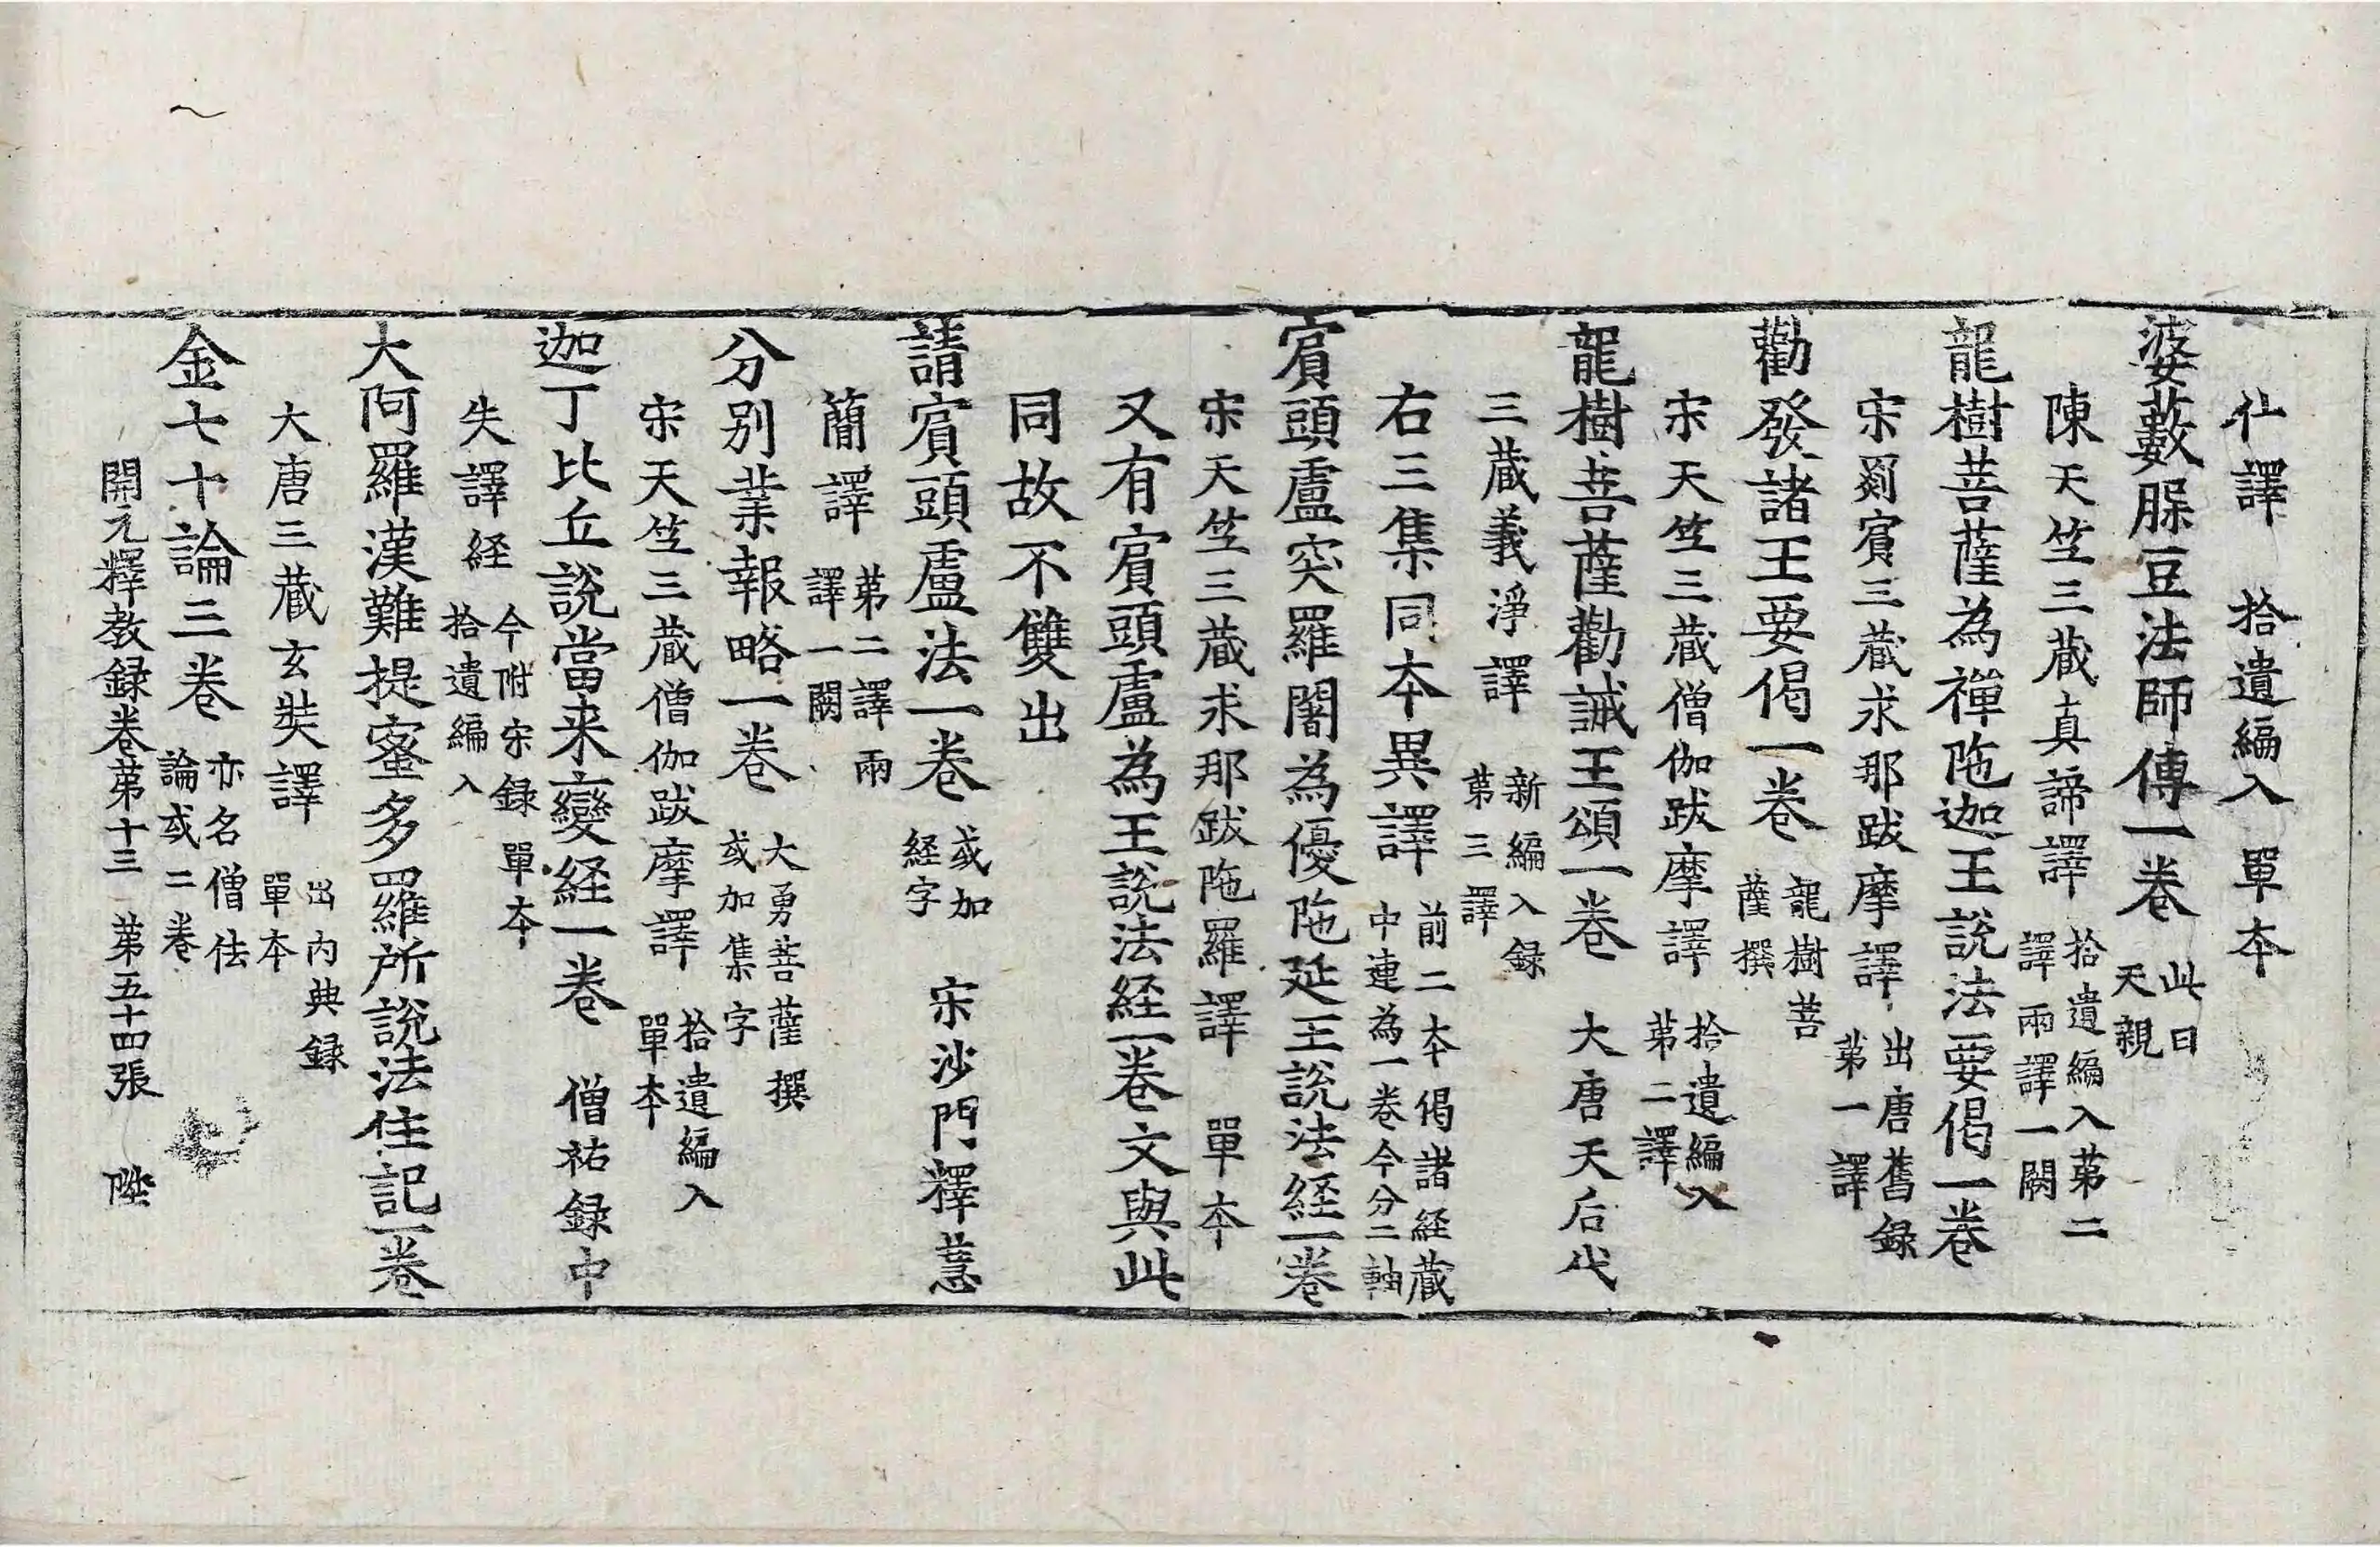 什譯 拾遺編入 單本
婆藪脲豆法師傳一卷 此曰天親
陳天竺三藏真諦譯 拾遺編入第二譯兩譯一闕
龍樹菩薩為禪陁迦王說法要偈一卷
宋罽賓三藏求那跋摩譯 出唐舊録第一譯
勸發諸王要偈一卷 龍樹菩薩撰
宋天竺三藏僧伽跋摩譯 拾遺編入第二譯
龍樹菩薩勸誡王頌一卷 大唐天后代
三藏義淨譯 新編入録第三譯
右三集同本異譯 前二本偈諸経藏中連為一卷今分二軸
賓頭盧突羅闍為優陁延王說法経一卷
宋天竺三藏求那跋陁羅譯 單本
又有賓頭盧為王說法経一卷文與此
同故不雙出
請賓頭盧法一卷 或加経字 宋沙門釋慧
蕳譯 第二譯兩譯一闕
分別業報略一卷 大勇菩薩撰或加集字
宋天竺三藏僧伽跋摩譯 拾遺編入單本
迦丁比丘說當来變経一卷 僧祐録中
失譯経 今附宋録拾遺編入 單本
大阿羅漢難提蜜多羅所說法住記一卷
大唐三藏玄奘譯 出内典録單本
金七十論三卷 亦名僧佉論或二卷
開元釋教録卷第十三 第五十四張 陞